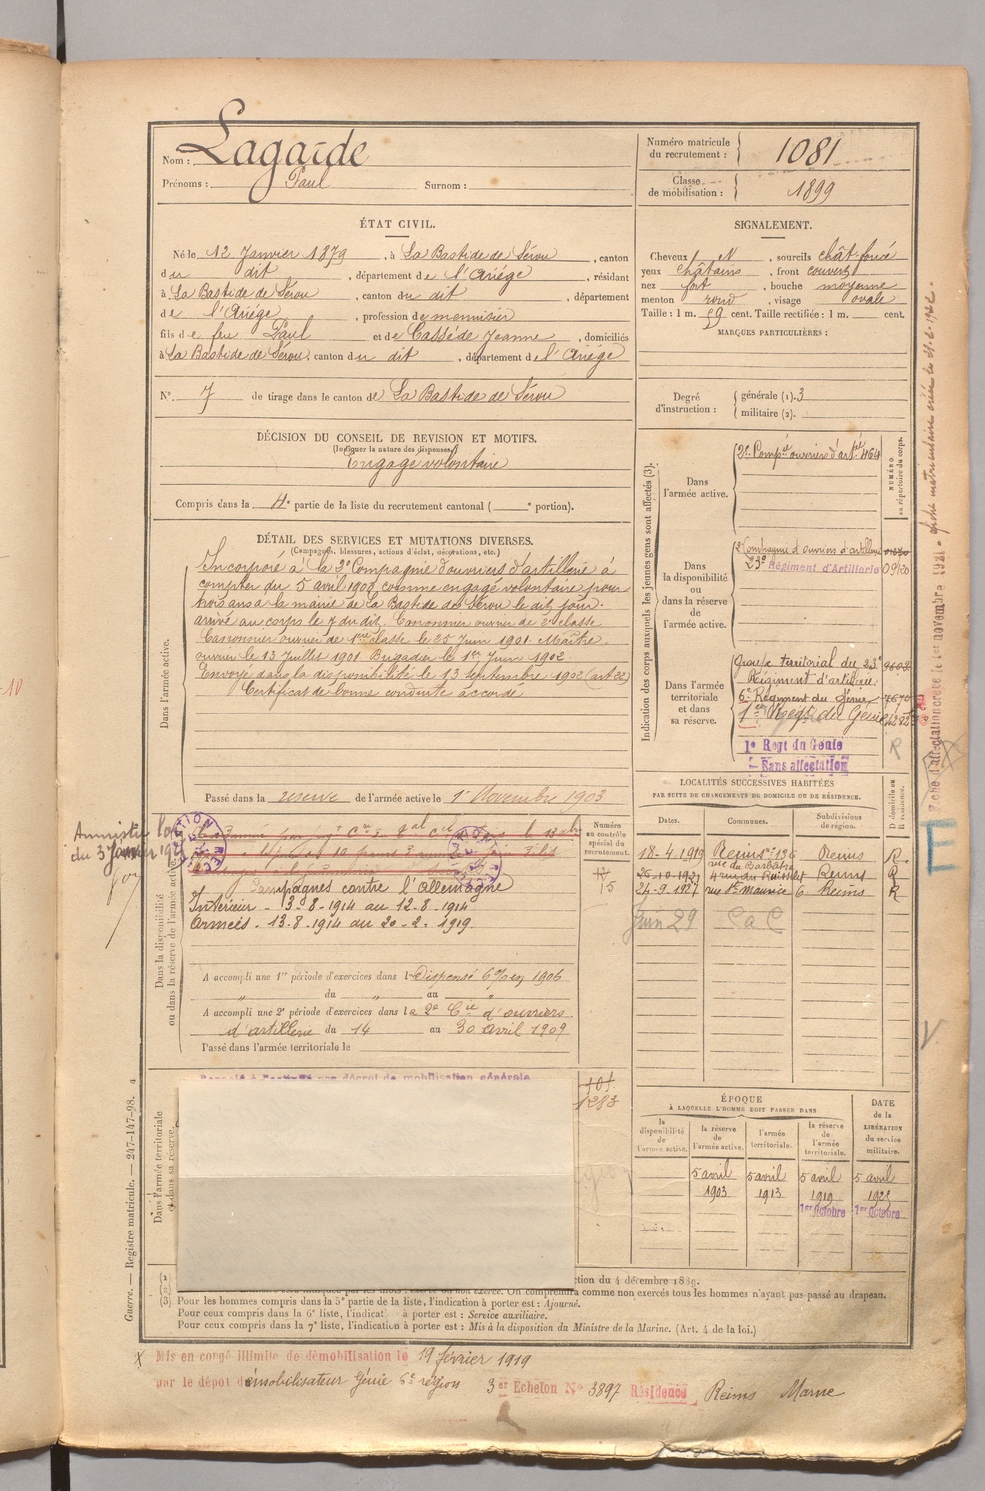 Nom : Lagarde
Prénoms : Paul Surnom :
Numéro matricule du recrutement : 1081
Classe de mobilisation : 1899
ÉTAT CIVIL.
Né le 12 Janvier 1879, à La Bastide de Sérou, canton
du dit, département de l'Ariège, résidant
à La Bastide de Sérou, canton du dit, département
de l'Ariège, profession de menuisier
fils de feu Paul et de Cassé de Jeanne, domiciliés
à La Bastide de Sérou, canton du dit, département de l'Ariège
N° 7 de tirage dans le canton de La Bastide de Sérou
SIGNALEMENT.
Cheveux N, sourcils chât-foncé
yeux châtains, front couvert
nez fort, bouche moyenne
menton rond, visage ovale
Taille : 1 m. 59 cent. Taille rectifiée : 1 m. cent.
MARQUES PARTICULIÈRES :
Degré d'instruction : générale (1). 3
militaire (2).
DÉCISION DU CONSEIL DE REVISION ET MOTIFS.
(Indiquer la nature des dispenses.)
Engagé volontaire
Compris dans la 4e partie de la liste du recrutement cantonal ( e portion).
DÉTAIL DES SERVICES ET MUTATIONS DIVERSES.
(Campagnes, blessures, actions d'éclat, décorations, etc.)
Dans l'armée active.
Incorporé à la 3e Compagnie d'ouvriers d'artillerie à
compter du 5 avril 1900 comme engagé volontaire pour
trois ans à la mairie de La Bastide de Sérou le dit jour.
arrivé au corps le 7 du dit. Canonnier ouvrier de 2e classe
Canonnier ouvrier de 1ere classe le 25 Juin 1901. Maître
ouvrier le 13 Juillet 1901 Brigadier le 1er Juin 1902.
Envoyé dans la disponibilité le 13 septembre 1902 (art 22)
Certificat de bonne conduite accordé
Passé dans la réserve de l'armée active le 1er Novembre 1903
Indication des corps auxquels les jeunes gens sont affectés (3).
NUMÉRO au répertoire du corps.
Dans l'armée active.
2e Compie ouvriers d'artie 464
Dans la disponibilité ou dans la réserve de l'armée active.
2e Compagnie d'ouvriers d'artillerie
23e Régiment d'Artillerie
Dans l'armée territoriale et dans sa réserve.
Groupe territorial du 23e
Régiment d'artillerie
6e Régiment du Génie
1er Regt du Génie
1er Regt du Génie
Sans affectation
R
Amnistie
du 3 Janvier
Dans la disponibilité ou dans la réserve de l'armée active.
Campagnes contre l'Allemagne
Intérieur - 3-8-1914 au 12-8-1914
Armées - 13-8-1914 au 20-2-1919.
A accompli une 1re période d'exercices dans l Dispensé 1906
du " au "
A accompli une 2e période d'exercices dans la 2e Cie d'ouvriers
d'artillerie du 14 au 30 avril 1909
Passé dans l'armée territoriale le
Numéro au contrôle spécial du recrutement.
15
LOCALITÉS SUCCESSIVES HABITÉES
PAR SUITE DE CHANGEMENTS DE DOMICILE OU DE RÉSIDENCE.
Dates. Communes. Subdivisions de région. D domicile ou R résidence.
18-4-1919 Reims rue du Barbatre Reims R
Reims R
24-9-1927 rue St Maurice 6 Reims R
Juin 29
Dans l'armée territoriale et dans sa réserve.
1283
ÉPOQUE
À LAQUELLE L'HOMME DOIT PASSER DANS
DATE de la LIBÉRATION du service militaire.
la disponibilité de l'armée active. la réserve de l'armée active. l'armée territoriale. la réserve de l'armée territoriale.
5 avril 1903 5 avril 1913 5 avril 1919 5 avril
1er Octobre 1er Octobre
(1)
ction du 4 décembre 1889.
(2)
On comprendra comme non exercés tous les hommes n'ayant pas passé au drapeau.
(3) Pour les hommes compris dans la 5e partie de la liste, l'indication à porter est : Ajourné.
Pour ceux compris dans la 6e liste, l'indicat à porter est : Service auxiliaire.
Pour ceux compris dans la 7e liste, l'indication à porter est : Mis à la disposition du Ministre de la Marine. (Art. 4 de la loi.)
Guerre. — Registre matricule. — 247-147-98. 4
X Mis en congé illimité de démobilisation le 19 février 1919
par le dépôt démobilisateur Génie 6e région 3er Echelon N° 3897 Résidence Reims Marne